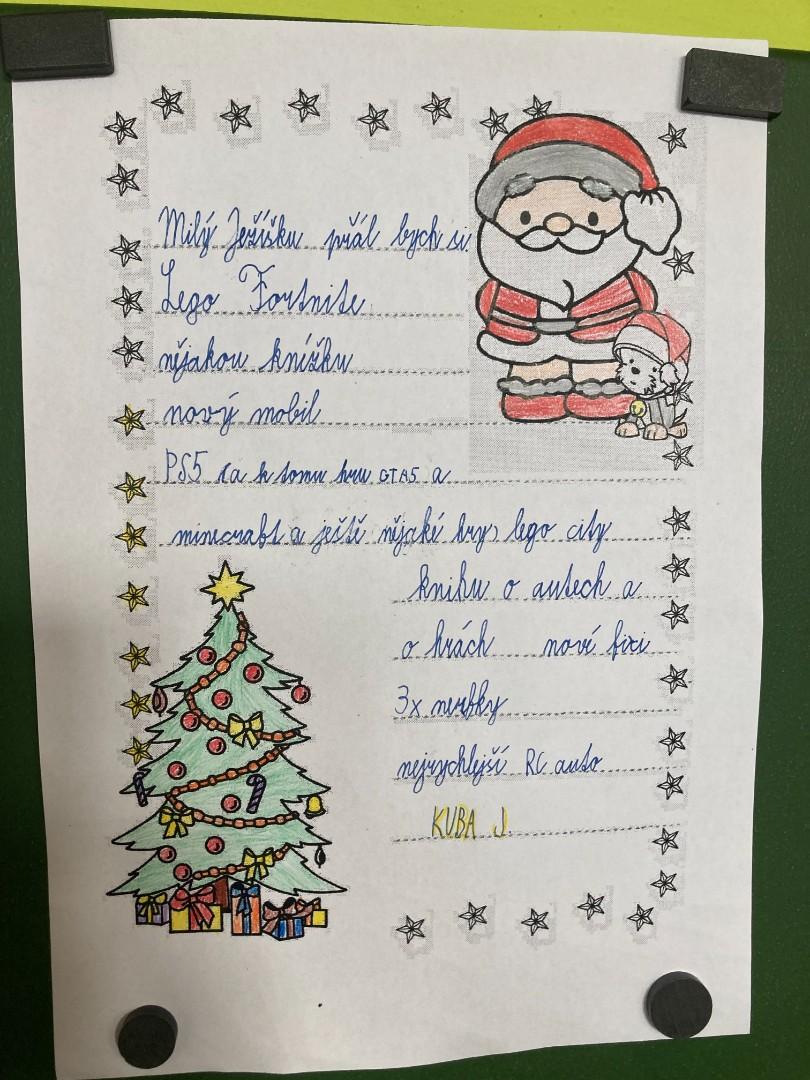 Milý Ježíšku přál bych si
Lego Fortnite
nějakou knížku
nový mobil
PS5 a k tomu hru GTA5 a
minecrabt a ještě nějakí hry, lego city
knihu o autech a
o hrách noví fixi
3x nerfky
nejrychlejší RC auto
KUBA J.